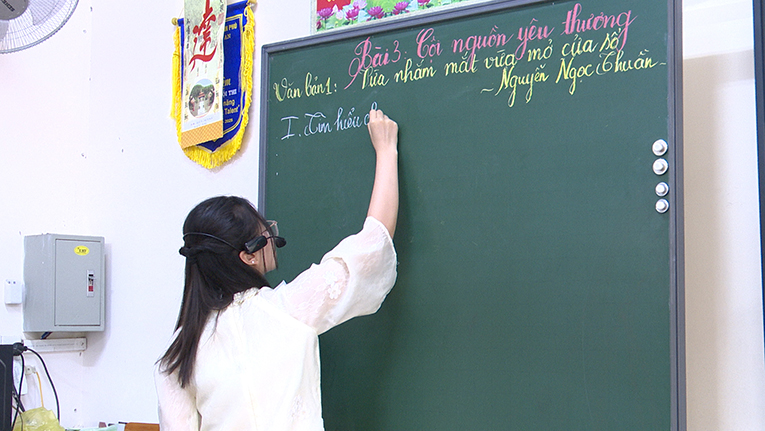 Bài 3: Cội nguồn yêu thương
Văn bản 1: Vừa nhắm mắt vừa mở cửa sổ
~ Nguyễn Ngọc Thuần ~
I. Tìm hiểu c
Talent"
達